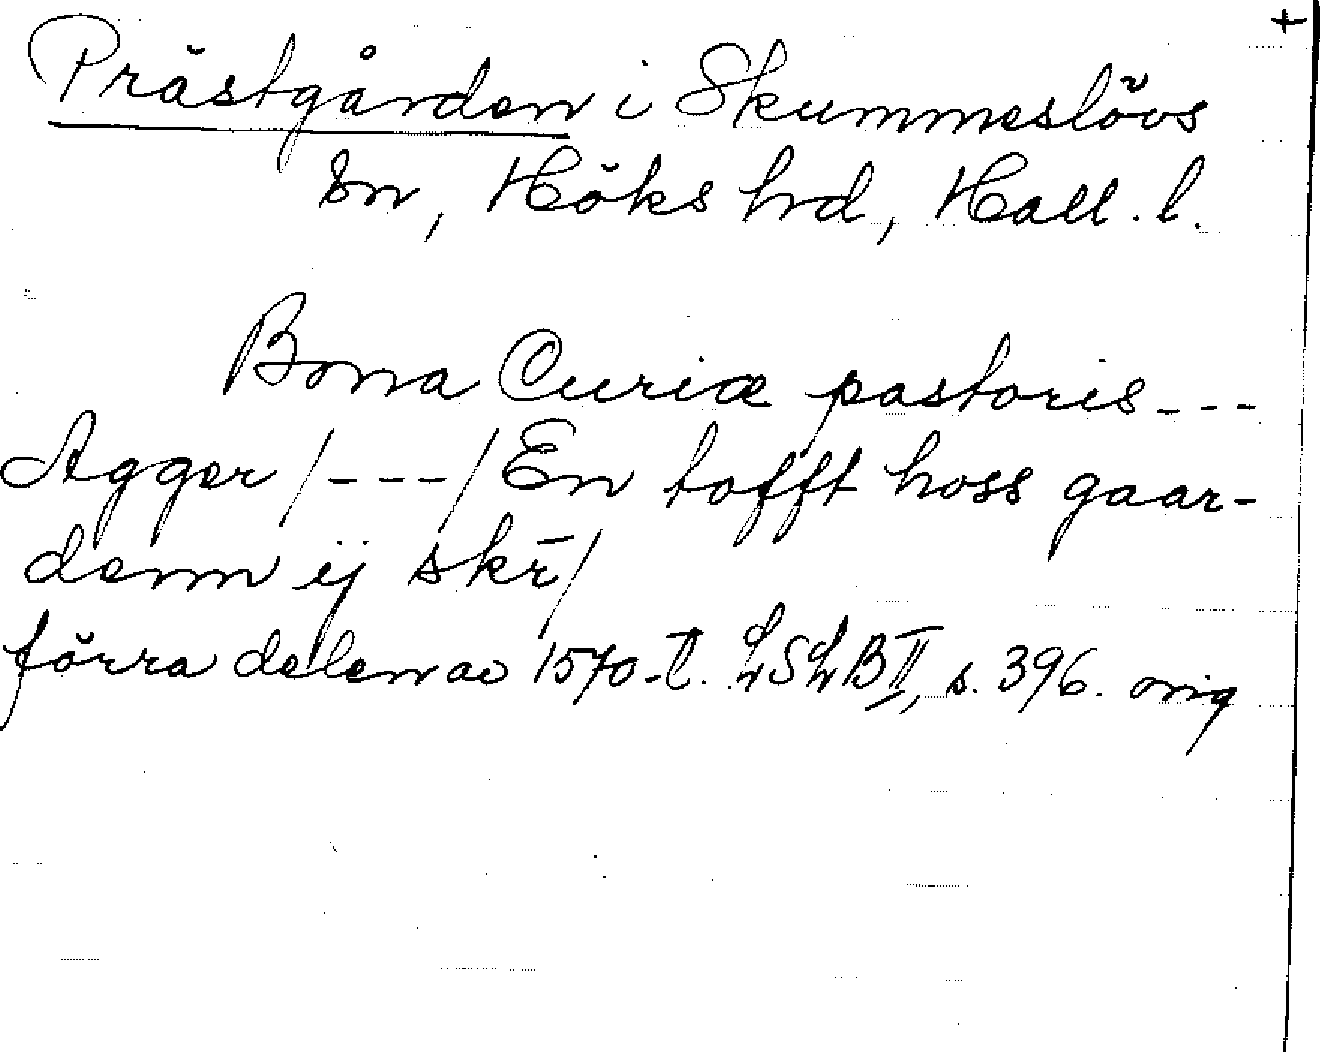 +
Prästgården i Skummeslövs
sn, Höks hrd, Hall. l.
Bona Curiæ pastoris ---
Agger / --- / En tofft hoss gaar-
denn ij skr̄ /
förra delen av 1570-t. LSLB II, s. 396. orig